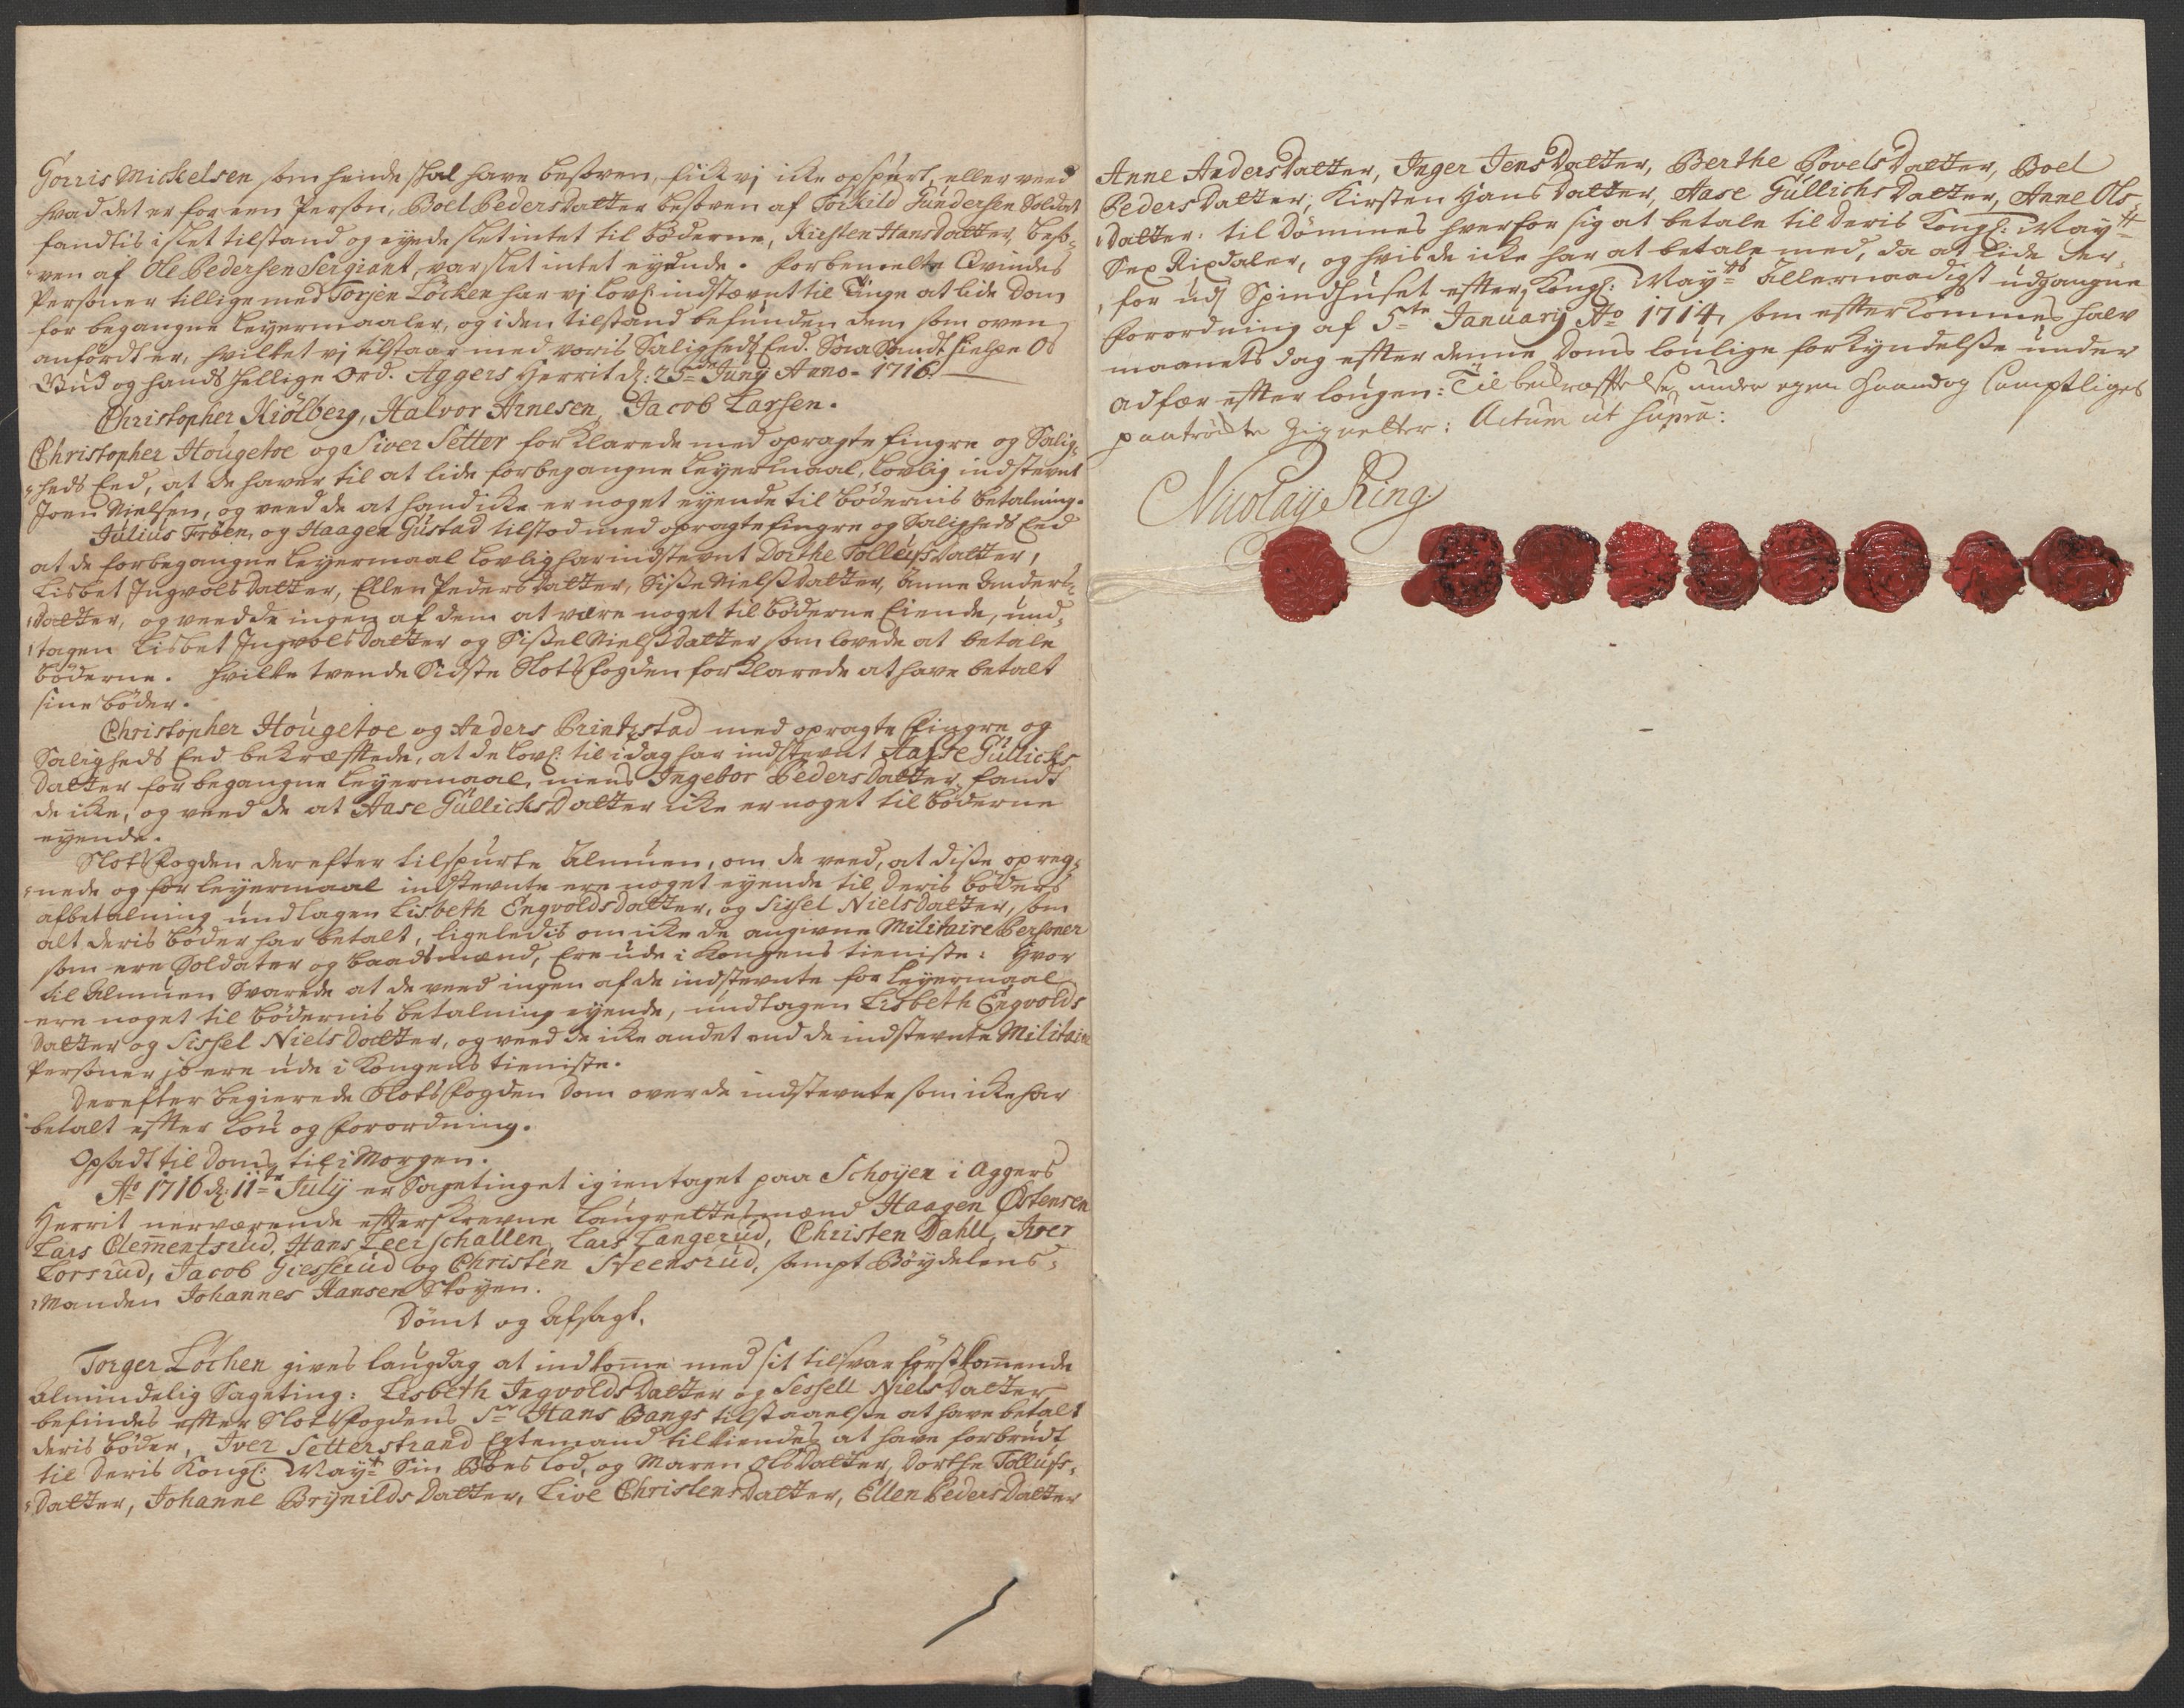 Gorris Mickelsen som hende skal have besoven, fick vj icke opspurt, eller veed
hvad det er for een Person, Boel Pedersdatter besoven af Torkild Gundersen Soldat
fandtis i slet tilstand og eyede slet intet til bøderne, Kiersten Hansdatter, beso-
ven af Ole Pedersen Sergiant, var slet intet eyende. forbemelte Qvindes
Personer tillige med Torsen Löcken har vj lovl: indstævnt til Tinge at lide Dom
for begangne leyermaaler, og i den tilstand befunden dem som oven
anfördt er, hvilket vj tilstaar med voris Saligheds Eed. Saa Sandt hielpe Os
Gud og hands hellige Ord. Aggers Herrit d: 25de Junij Anno 1716.
Christopher Kiölberg, Halvor Arnesen, Jacob Larsen.
Christopher Hougetoe og Siver Setter forklarede med opragte fingre og Salig-
heds Eed, at de haver til at lide for begangne leyermaal, lovlig indstevnt
Joen Nielsen, og veed de at hand icke er noget eyende til bödernis betalning.
Julius Fröen, og Haagen Gustad tilstod med opragte fingre og Saligheds Eed
at de for begangne leyermaal lovlig har indstevnt Dorthe Tollefsdatter,
Lisbet Ingvolsdatter, Ellen Pedersdatter, Sisse Nielsdatter, Anne Anders-
datter, og veed de ingen af dem at være noget til böderne Eiende, und-
tagen Lisbet Ingvolsdatter og Sissel Nielsdatter som lovede at betale
böderne. hvilke tvende Sidste Slotsfogden forklarede at have betalt
sine böder.
Christopher Hougetoe og Anders Printzstad med opragte fingre og
Saligheds Eed bekræftede, at de lovl: til i dag har indstevnt Aasse Gullichs
Datter for begangne leyermaal, mens Ingebor Pedersdatter fandt
de icke, og veed de at Aase Gullichsdatter icke er noget til böderne
eyende.
Slotsfogden derefter tilspurte Almuen, om de veed, at disse opreg-
nede og for leyermaal indstevnte ere noget eyende til deris böders
afbetalning undtagen Lisbeth Engvoldsdatter, og Sissel Nielsdatter, som
alt deris böder har betalt, ligeledis om icke de angivne Militaire Personer
som ere Soldater og baadsmænd, Ere ude i Kongens tieniste: Hvor
til Almuen Svarede at de veed ingen af de indstevnte for leyermaal
ere noget til bödernis betalning eyende, undtagen Lisbeth Engvolds
Datter og Sissel Nielsdatter, og veed de icke andet end de indstevnte Militaire
Personer jo ere ude i Kongens tieniste.
Derefter begierede Slotsfogden Dom over de indstevnte som icke har
betalt efter Lou og forordning.
Opsadt til Doms til i Morgen.
Ao 1716 d: 11te July er Sagetinget igientaget paa Schoyen i Aggers
Herrit nerværende efterskrevne laugrettesmænd Haagen Östensen
Lars Clemmentsrud, Hans Leerschallen, Lars Langerud, Christen Dahll, Iver
Lorsrud, Jacob Giesserud og Christen Steensrud, sampt Böydelens-
manden Johannes Hansen Skoyen.
Dömt og Afsagt.
Torger Löchen gives laugdag at indkomme med sit tilsvar förstkommende
Almindelig Sageting: Lisbeth Ingvoldsdatter og Sessell Nielsdatter
befindes efter Slotsfogdens Sr Hans Bangs tilstaaelse at have betalt
deris böder, Iver Setterstrand Egtemand tilkiendes at have forbrudt
til Deris Kongl: Mayt Sin Boes lod, og Maren Olsdatter, Dorthe Tollufs-
Datter, Johanne Brynildsdatter, Live Christensdatter, Ellen Pedersdatter
Anne Andersdatter, Inger Jensdatter, Berthe Povelsdatter, Boel
Pedersdatter, Kirsten Hansdatter, Aase Gullichsdatter, Anne Ols-
datter: til Dömmes hver for sig at betale til Deris Kongl: Maytt
Sex Rixdaler, og hvis de icke har at betale med, da at lide der-
for udj Spindhuset efter Kongl: Mayts Allernaadigst udgangne
forordning af 5te January Ao 1714, som efterkommes halv
maanets dag efter denne Doms loulige forkyndelse under
adfær efter lougen: Til bekræftelse under egen haand og Samptliges
pantröckte Zignetter: Actum ut supra:
Nicolaije Ring